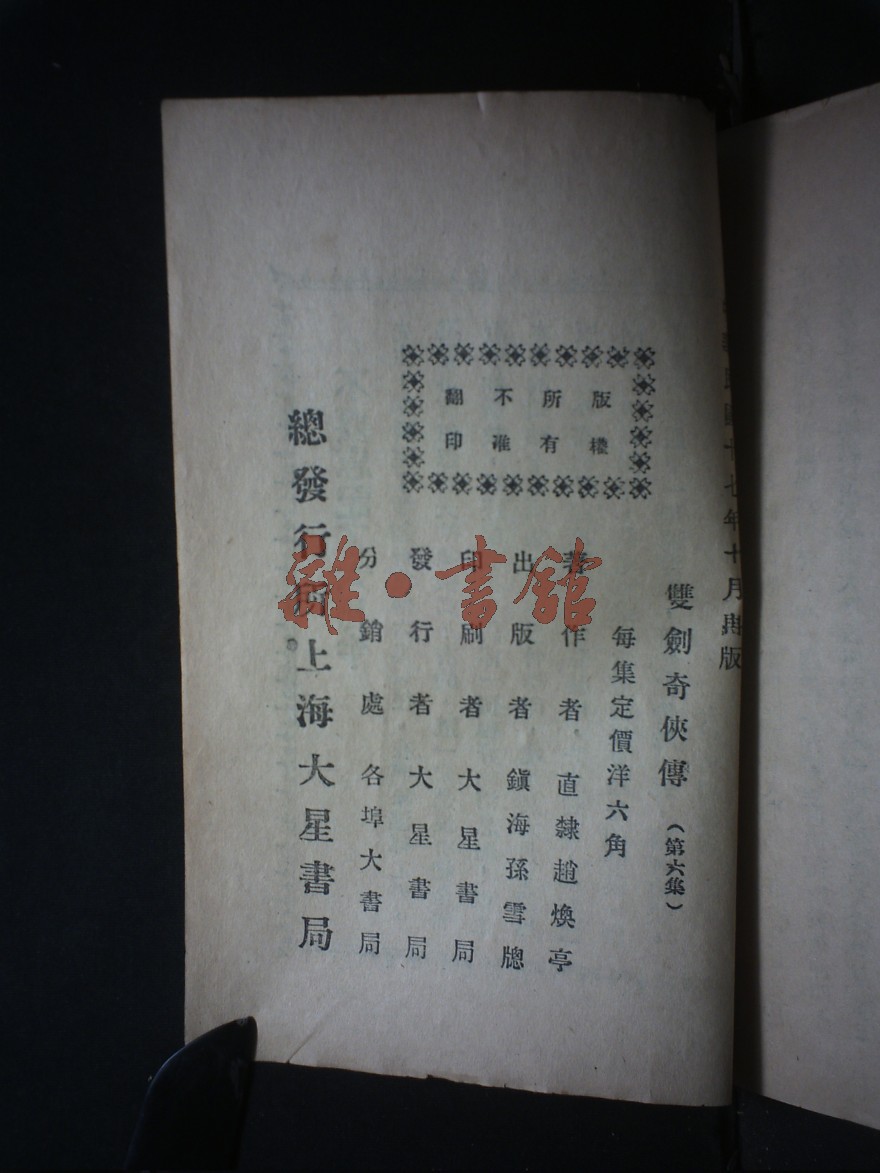 中華民國十七年十月再版
雙劍奇俠傳（第六集）
每集定價洋六角
著作者 直隸趙煥亭
出版者 鎭海孫雪牕
印刷者 大星書局
發行者 大星書局
分銷處 各埠大書局
總發行所上海大星書局
版權
所有
不准
翻印
雜·書館